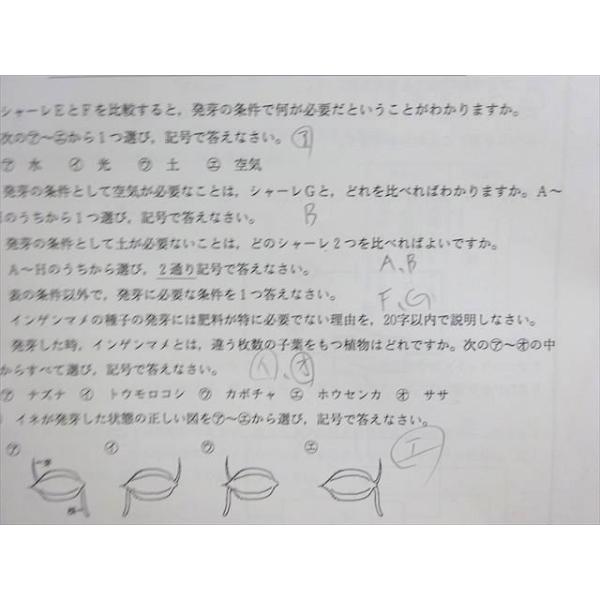 シャーレEとFを比較すると，発芽の条件で何が必要だということがわかりますか。
次の㋐～㋓から1つ選び，記号で答えなさい。
㋐ 水 ㋑ 光 ㋒ 土 ㋓ 空気
発芽の条件として空気が必要なことは，シャーレGと，どれを比べればわかりますか。A～
のうちから1つ選び，記号で答えなさい。 B
発芽の条件として土が必要ないことは，どのシャーレ2つを比べればよいですか。
A～Hのうちから選び，2通り記号で答えなさい。 A、B
表の条件以外で，発芽に必要な条件を1つ答えなさい。 F、G
インゲンマメの種子の発芽には肥料が特に必要でない理由を，20字以内で説明しなさい。
発芽した時，インゲンマメとは，違う枚数の子葉をもつ植物はどれですか。次の㋐～㋔の中
からすべて選び，記号で答えなさい。 ㋑、㋔
㋐ ナズナ ㋑ トウモロコシ ㋒ カボチャ ㋓ ホウセンカ ㋔ ササ
イネが発芽した状態の正しい図を㋐～㋓から選び，記号で答えなさい。
㋓
㋐ ㋑ ㋒ ㋓